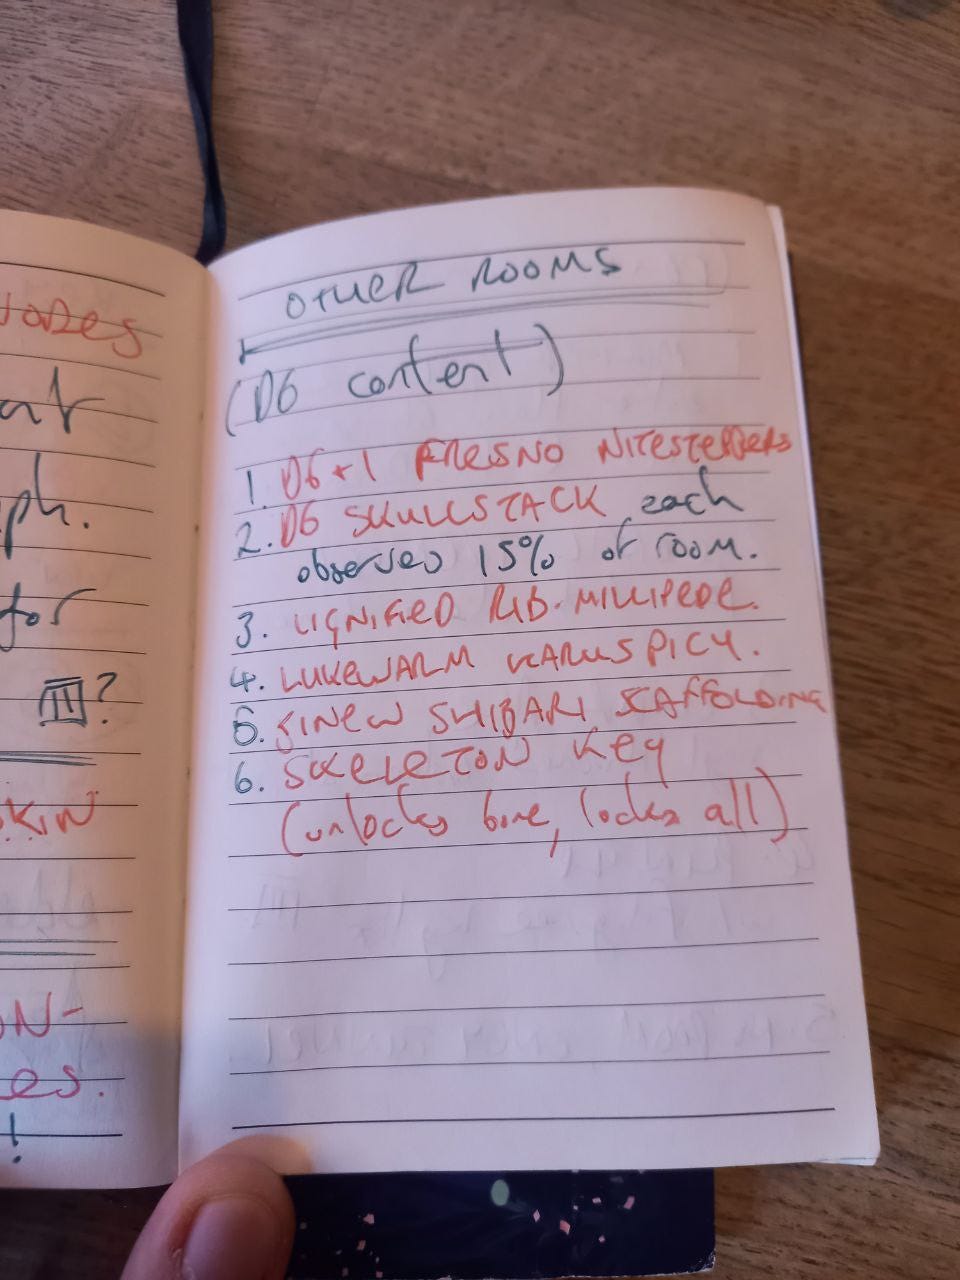 OTHER ROOMS
(D6 content)
1. D6+1 FRESNO NITESTEPPERS
2. D6 SKULLSTACK each
observes 15% of room.
3. LIGNIFIED RIB-MILLIPEDE.
4. LUKEWARM HARUSPICY.
5. SINEW SHIBARI SCAFFOLDING
6. SKELETON KEY
(unlocks bone, locks all)
for
III?